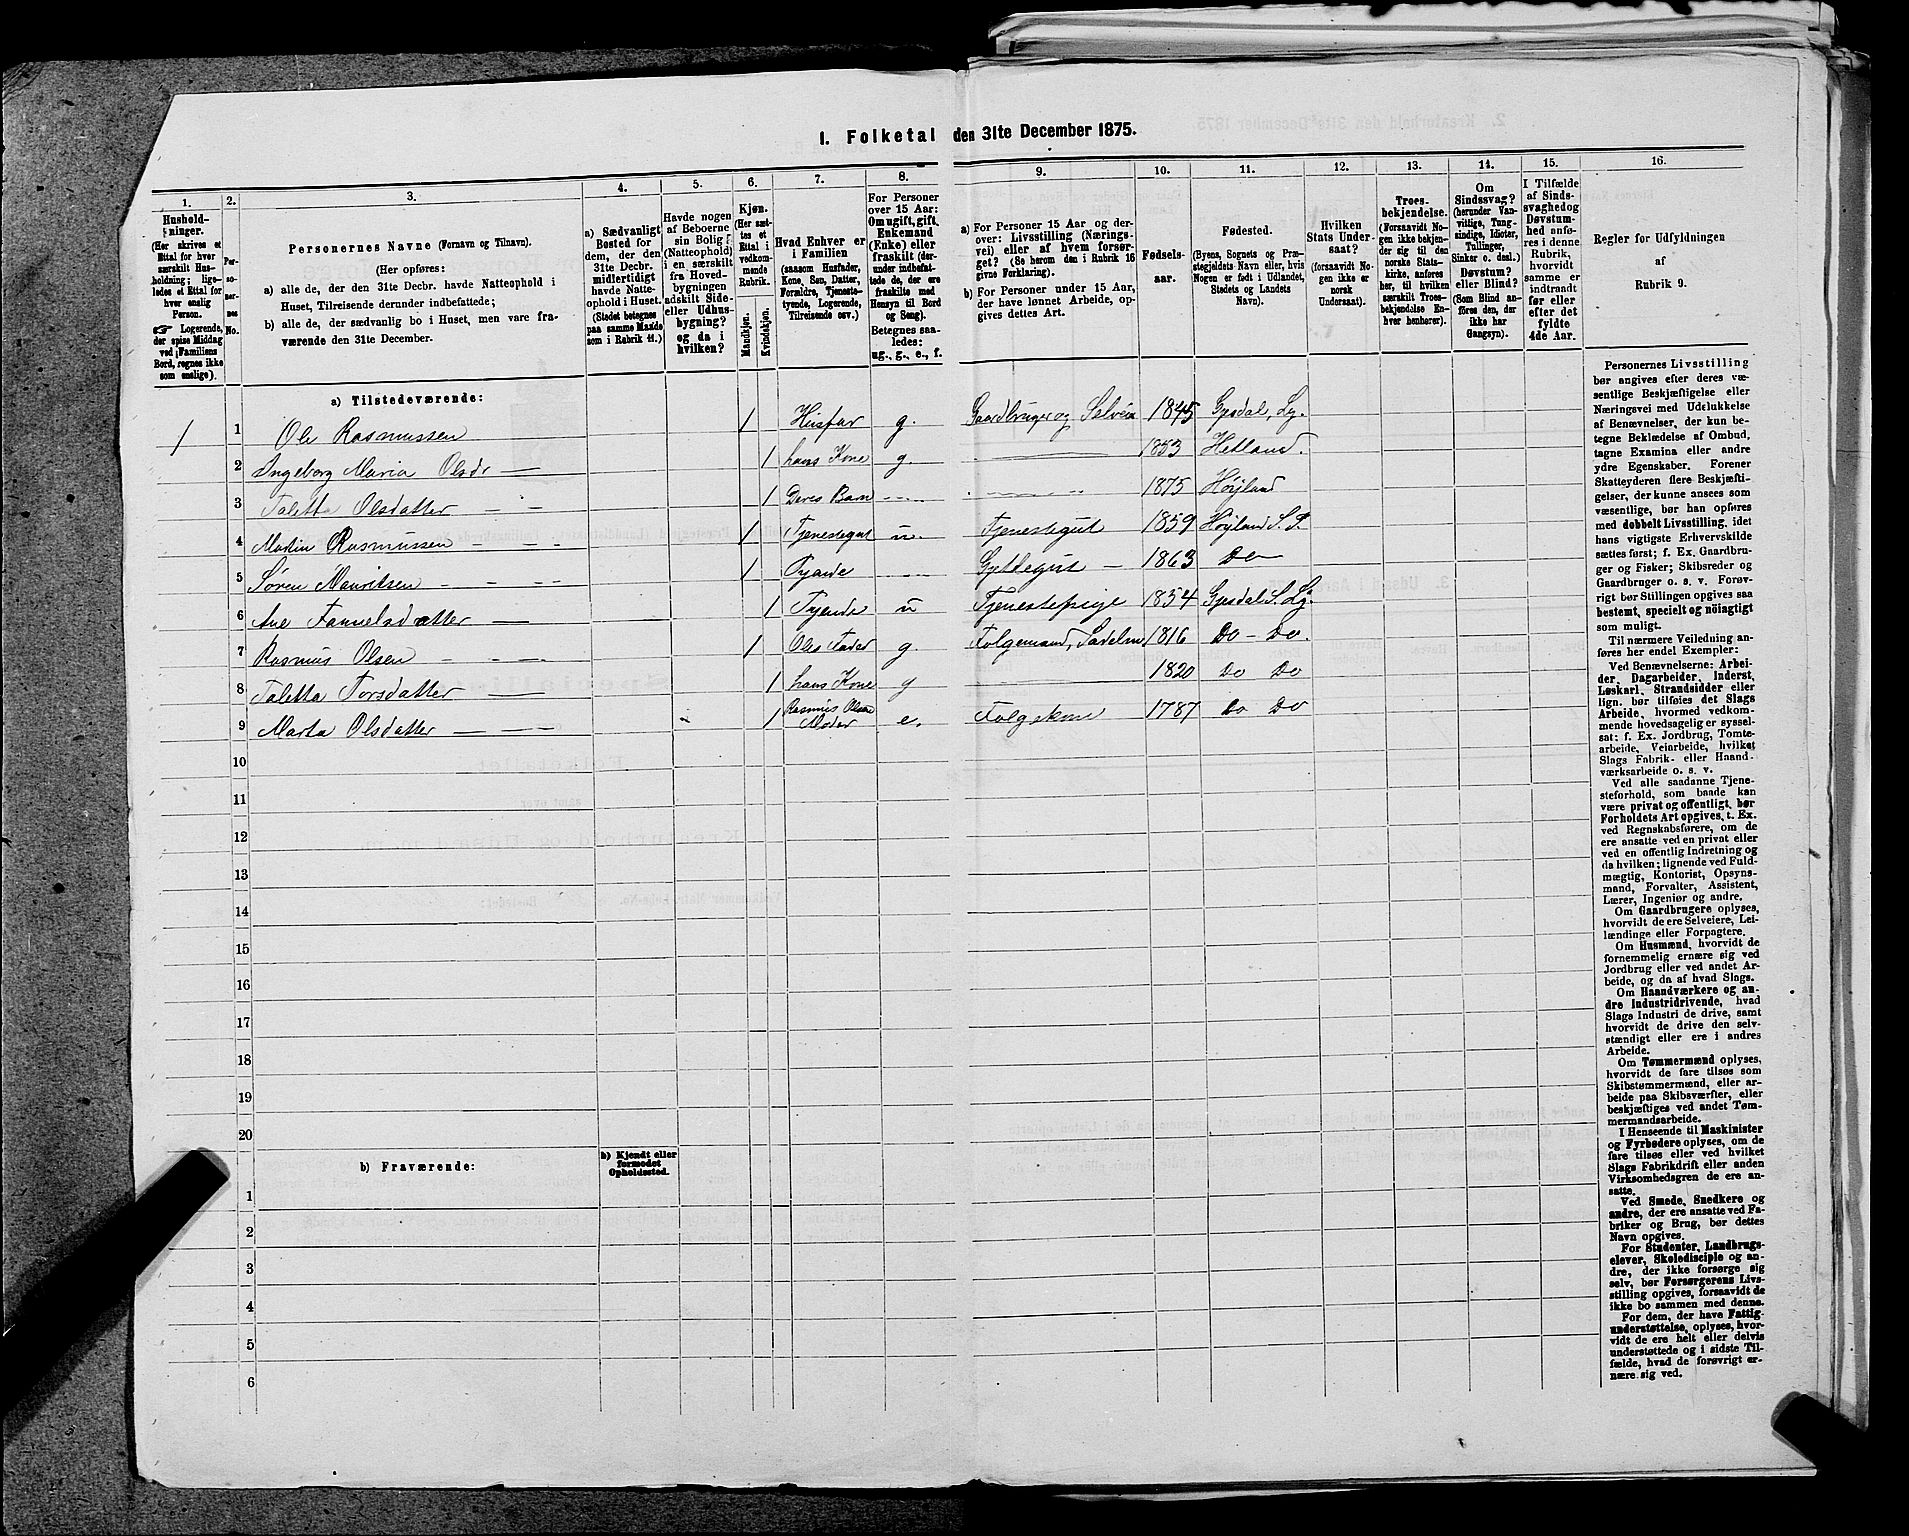 1. Folketal den 31te December 1875.
1.
2.
3.
4.
5.
6.
7.
8.
9.
10.
11.
12.
13.
14.
15.
16.
Hushold-
ninger.
(Her skrives et
Ettal for hver
særskilt Hus-
holdning; lige-
ledes et Ettal for
hver enslig
Person.
☞ Logerende,
der spise Middag
ved Familiens
Bord, regnes ikke
som enslige).
Per-
so-
ner-
nes
No.
Personernes Navne (Fornavn og Tilnavn).
(Her opføres:
a) alle de, der den 31te Decbr. havde Natteophold i
Huset, Tilreisende derunder indbefattede;
b) alle de, der sædvanlig bo i Huset, men vare fra-
værende den 31te December.
a) Sædvanligt
Bosted for
dem, der den
31te Decbr.
midlertidigt
havde Natte-
ophold i Huset.
(Stedet betegnes
paa samme Maade
som i Rubrik 11.)
Havde nogen
af Beboerne
sin Bolig
(Natteophold)
i en særskilt
fra Hoved-
bygningen
adskilt Side-
eller Udhus-
bygning?
og da i
hvilken?
Kjøn.
(Her sæt-
tes et
Ettal i
vedkom-
mende
Rubrik.
Mandkjøn.
Kvindekjøn.
Hvad Enhver er
i Familien
(saasom Husfader,
Kone, Søn, Datter,
Forældre, Tjeneste-
tyende, Logerende,
Tilreisende osv.)
For Personer
over 15 Aar:
Om ugift, gift,
Enkemand
(Enke) eller
fraskilt (der-
under indbefat-
tede de, der ere
fraskilte med
Hensyn til Bord
og Seng).
Betegnes saa-
ledes:
ug., g., e., f.
a) For Personer 15 Aar og der-
over: Livsstilling (Nærings-
vei) eller af hvem forsør-
get? (Se herom den i Rubrik 16
givne Forklaring).
b) For Personer under 15 Aar,
der have lønnet Arbeide, op-
gives dettes Art.
Fødsels-
aar.
Fødested.
(Byens, Sognets og Præ-
stegjeldets Navn eller, hvis
Nogen er født i Udlandet,
Stedets og Landets
Navn).
Hvilken
Stats Under-
saat?
(forsaavidt No-
gen ikke er
norsk
Undersaat).
Troes-
bekjendelse.
(Forsaavidt No-
gen ikke bekjen-
der sig til den
norske Stats-
kirke, anføres
her, til hvilken
særskilt Troes-
bekjendelse En-
hver henhører).
Om
Sindssvag?
(herunder Van-
vittige, Tung-
sindige, Idioter,
Tullinger,
Sinker o. desl.)
Døvstum?
eller Blind?
(Som Blind an-
føres den, der
ikke har
Gangsyn).
I Tilfælde
af Sinds-
svaghed og
Døvstum-
hed anfø-
res i denne
Rubrik,
hvorvidt
samme er
indtraadt
før eller
efter det
fyldte
4de Aar.
Regler for Udfyldningen
af
Rubrik 9.
a) Tilstedeværende:
1 1 Ole Rasmussen 1 Husfar g. Gaardbruger og Selveier 1845 Gjesdal, Ly.
2 Ingeborg Maria Olsdr 1 hans Kone g. 1853 Hetland.
3 Taletta Olsdatter 1 Deres Barn 1875 Høyland
4 Martin Rasmussen 1 Tjenestegut u. Tjenestegut 1859 Høyland S. P.
5 Søren Mauritsen 1 Tyende Gjettegut 1863 Do
6 Ane 1 Tyende u Tjenestepige 1854 Gjesdal S. Ly.
7 Rasmus Olsen 1 Oles Fader g. Folgemand, 1816 Do Do.
8 Taletta Torsdatter 1 hans Kone g 1820 Do Do
9 Marta Olsdatter 1 Rasmus Olsens Moder e. Folgekone 1787 Do Do
10
11
12
13
14
15
16
17
18
19
20
b) Fraværende:
b) Kjendt eller
formodet
Opholdssted.
1
2
3
4
5
6
Personernes Livsstilling
bør angives efter deres væ-
sentlige Beskjæftigelse eller
Næringsvei med Udelukkelse
af Benævnelser, der kun be-
tegne Beklædelse af Ombud,
tagne Examina eller andre
ydre Egenskaber. Forener
Skatteyderen flere Beskjæfti-
gelser, der kunne ansees som
væsentlige, bør han opføres
med dobbelt Livsstilling, idet
hans vigtigste Erhvervskilde
sættes først; f. Ex. Gaardbru-
ger og Fisker; Skibsreder og
Gaardbruger o. s. v. Forøv-
rigt bør Stillingen opgives saa
bestemt, specielt og nøiagtigt
som muligt.
Til nærmere Veiledning an-
føres her endel Exempler:
Ved Benævnelserne: Arbei-
der, Dagarbeider, Inderst,
Løskarl, Strandsidder eller
lign. bør tilføies det Slags
Arbeide, hvormed vedkom-
mende hovedsagelig er syssel-
sat; f. Ex. Jordbrug, Tomte-
arbeide, Veiarbeide, hvilket
Slags Fabrik- eller Haand-
værksarbeide o. s. v.
Ved alle saadanne Tjene-
steforhold, som baade kan
være privat og offentligt, bør
Forholdets Art opgives, t. Ex.
ved Regnskabsførere, om de
ere ansatte ved en privat eller
ved en offentlig Indretning og
da hvilken; lignende ved Fuld-
mægtig, Kontorist, Opsyns-
mand, Forvalter, Assistent,
Lærer, Ingeniør og andre.
Om Gaardbrugere oplyses,
hvorvidt de ere Selveiere, Lei-
lændinge eller Forpagtere.
Om Husmænd, hvorvidt de
fornemmelig ernære sig ved
Jordbrug eller ved andet Ar-
beide, og da af hvad Slags.
Om Haandværkere og an-
dre Industridrivende, hvad
Slags Industri de drive, samt
hvorvidt de drive den selv-
stændigt eller ere i andres
Arbeide.
Om Tømmermænd oplyses,
hvorvidt de fare tilsøs som
Skibstømmermænd, eller ar-
beide paa Skibsværfter, eller
beskjæftiges ved andet Tøm-
mermandsarbeide.
I Henseende til Maskinister
og Fyrbødere oplyses, om de
fare tilsøs eller ved hvilket
Slags Fabrikdrift eller anden
Virksomhedsgren de ere an-
satte.
Ved Smede, Snedkere og
andre, der ere ansatte ved Fa-
briker og Brug, bør dettes
Navn opgives.
For Studenter, Landbrugs-
elever, Skoledisciple og an-
dre, der ikke forsørge sig
selv, bør Forsørgerens Livs-
stilling opgives, forsaavidt de
ikke bo sammen med denne.
For dem, der have Fattig-
understøttelse, oplyses, hvor-
vidt de ere helt eller delvis
understøttede og i sidste Til-
fælde, hvad de forøvrigt er-
nære sig ved.